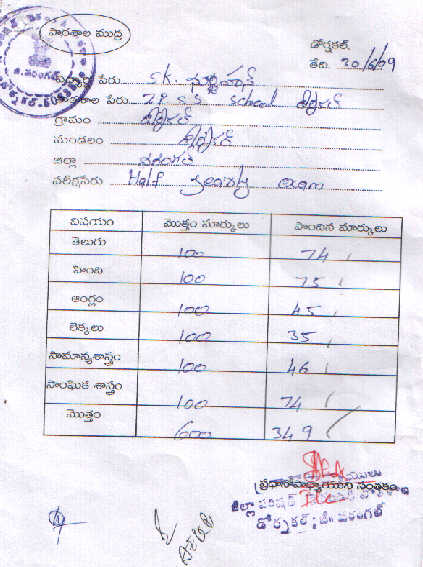 పాఠశాల ముద్ర
డోర్నకల్
తేది. 30/6/09
విద్యార్థి పేరు SK.
పాఠశాల పేరు ZPSS School డోర్నకల్
గ్రామం డోర్నకల్
మండలం డోర్నకల్
జిల్లా వరంగల్
పరీక్షపేరు Half yearly exam
విషయం మొత్తం మార్కులు పొందిన మార్కులు
తెలుగు 100 74
హింది 100 75
ఆంగ్లం 100 45
లెక్కలు 100 35
సామాన్యశాస్త్రం 100 46
సాంఘిక శాస్త్రం 100 74
మొత్తం 600 349
ప్రధానోపాధ్యాయుని సంతకం
జిల్లా పరిషత్
డోర్నకల్; జి॥ వరంగల్